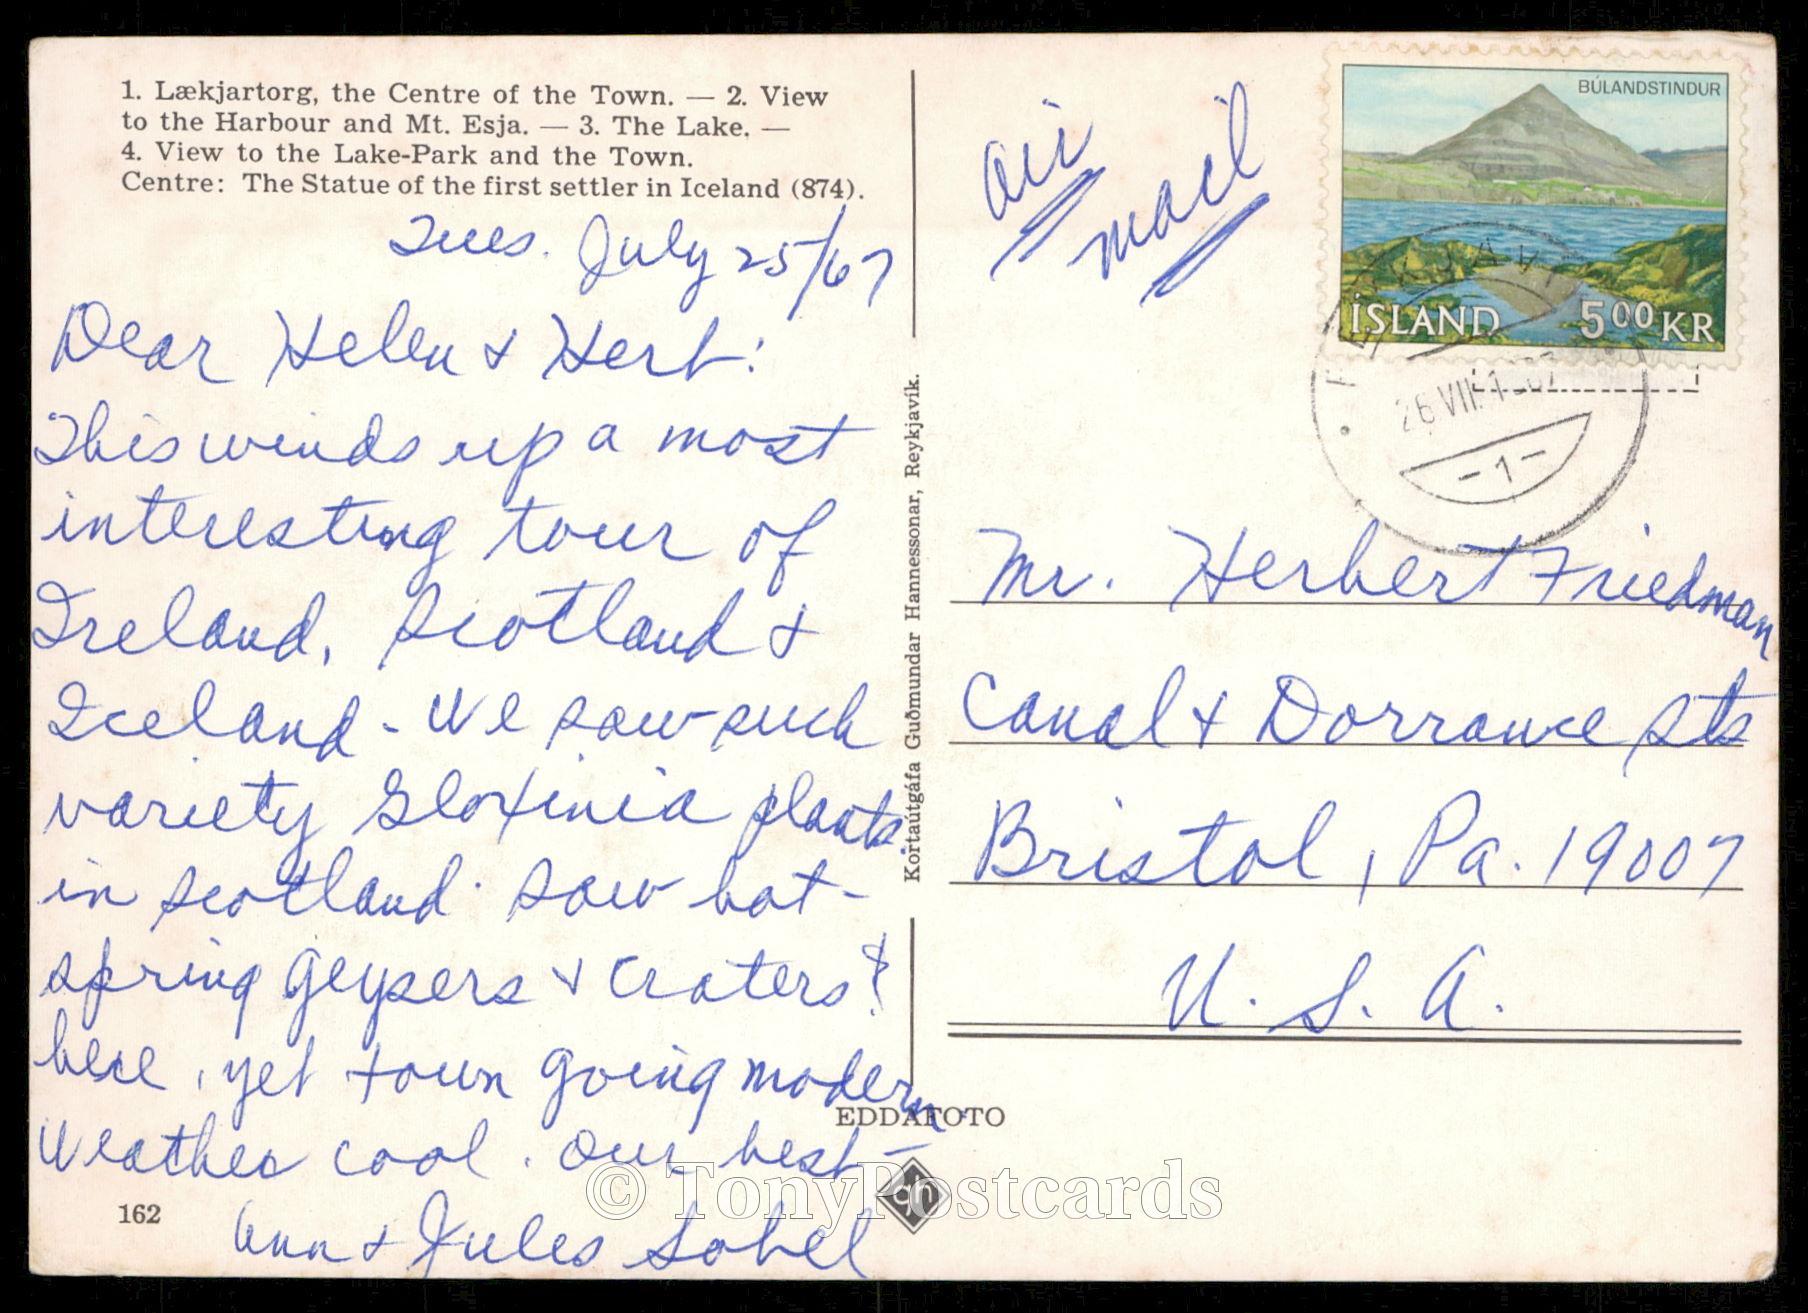 1. Lækjartorg, the Centre of the Town. — 2. View
to the Harbour and Mt. Esja. — 3. The Lake. —
4. View to the Lake-Park and the Town.
Centre: The Statue of the first settler in Iceland (874).
Tues. July 25/67
Dear Helen & Herb:
This winds up a most
interesting tour of
Ireland, Scotland &
Iceland - We saw such
variety Gloxinia plants
in Scotland. Saw hot-
spring geysers & craters &
here, yet town going modern
Weather cool. Our best -
Ann & Jules Sobel
162
Kortaútgáfa Guðmundar Hannessonar, Reykjavík.
EDDAFOTO
gh
© TonyPostcards
air
mail
BÚLANDSTINDUR
ÍSLAND 5.00 KR
REYKJAVÍK
26 VII. 1967
-1-
Mr. Herbert Friedman
Canal & Dorrance Sts
Bristol, Pa. 19007
U. S. A.